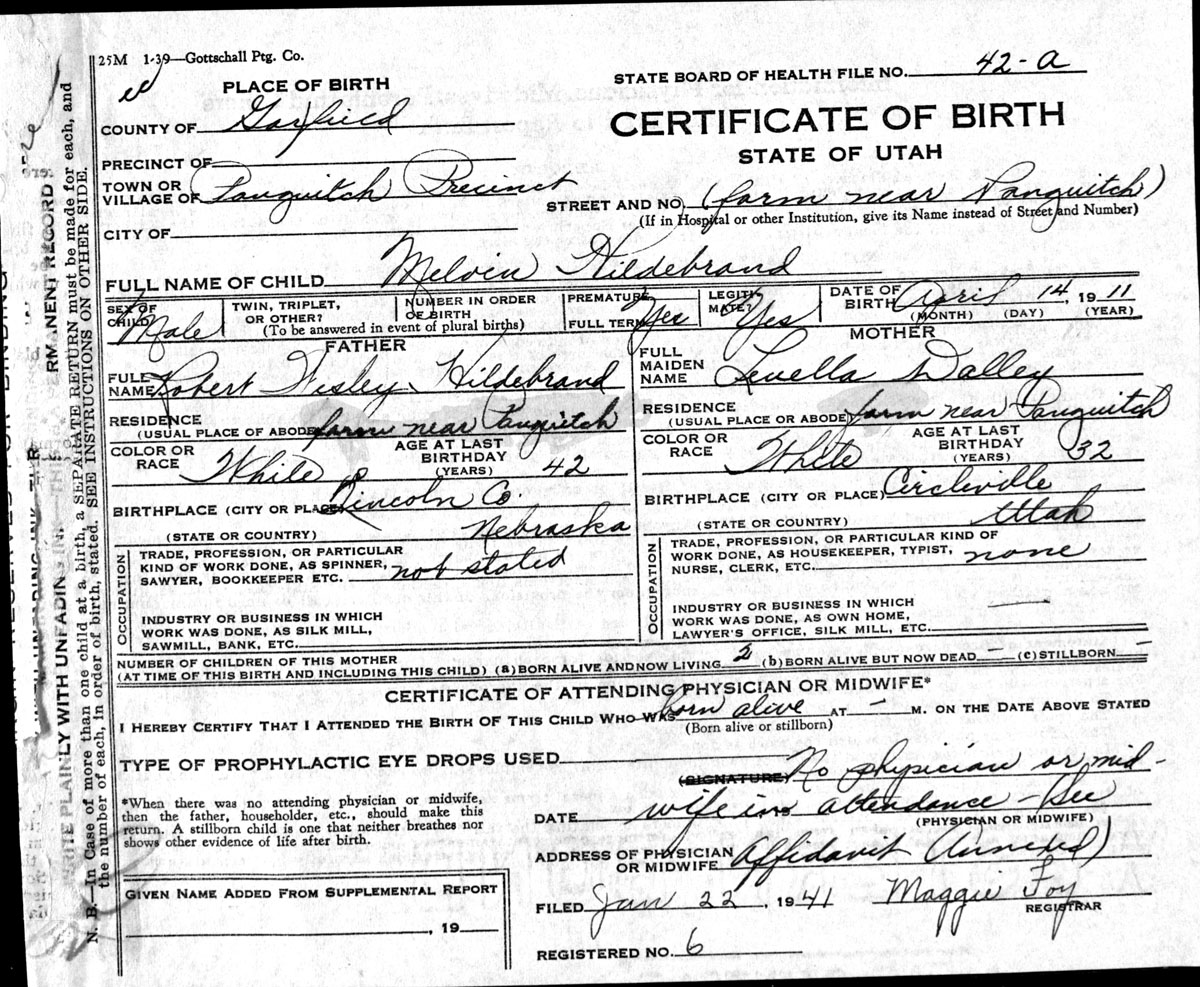 25M 1-39—Gottschall Ptg. Co.
STATE BOARD OF HEALTH FILE NO. 42-a
PLACE OF BIRTH
COUNTY OF Garfield
CERTIFICATE OF BIRTH
STATE OF UTAH
PRECINCT OF
TOWN OR VILLAGE OF Panguitch Precinct
STREET AND NO. (farm near Panguitch)
(If in Hospital or other Institution, give its Name instead of Street and Number)
CITY OF
FULL NAME OF CHILD Melvin Hildebrand
SEX OF CHILD Male
TWIN, TRIPLET, OR OTHER?
NUMBER IN ORDER OF BIRTH
(To be answered in event of plural births)
PREMATURE
FULL TERM Yes
LEGITIMATE? Yes
DATE OF BIRTH April 14, 1911
(MONTH) (DAY) (YEAR)
FATHER
FULL NAME Robert Wesley Hildebrand
RESIDENCE
(USUAL PLACE OF ABODE) farm near Panguitch
COLOR OR RACE White
AGE AT LAST BIRTHDAY (YEARS) 42
BIRTHPLACE (CITY OR PLACE) Lincoln Co.
(STATE OR COUNTRY) Nebraska
OCCUPATION
TRADE, PROFESSION, OR PARTICULAR
KIND OF WORK DONE, AS SPINNER,
SAWYER, BOOKKEEPER ETC. not stated
INDUSTRY OR BUSINESS IN WHICH
WORK WAS DONE, AS SILK MILL,
SAWMILL, BANK, ETC.
MOTHER
FULL MAIDEN NAME Levella Dalley
RESIDENCE
(USUAL PLACE OR ABODE) farm near Panguitch
COLOR OR RACE White
AGE AT LAST BIRTHDAY (YEARS) 32
BIRTHPLACE (CITY OR PLACE) Circleville
(STATE OR COUNTRY) Utah
OCCUPATION
TRADE, PROFESSION, OR PARTICULAR KIND OF
WORK DONE, AS HOUSEKEEPER, TYPIST,
NURSE, CLERK, ETC. none
INDUSTRY OR BUSINESS IN WHICH
WORK WAS DONE, AS OWN HOME,
LAWYER'S OFFICE, SILK MILL, ETC. —
NUMBER OF CHILDREN OF THIS MOTHER
(AT TIME OF THIS BIRTH AND INCLUDING THIS CHILD) (a) BORN ALIVE AND NOW LIVING 2 (b) BORN ALIVE BUT NOW DEAD — (c) STILLBORN —
CERTIFICATE OF ATTENDING PHYSICIAN OR MIDWIFE*
I HEREBY CERTIFY THAT I ATTENDED THE BIRTH OF THIS CHILD WHO WAS born alive AT — M. ON THE DATE ABOVE STATED
(Born alive or stillborn)
TYPE OF PROPHYLACTIC EYE DROPS USED
(SIGNATURE) No physician or mid-
DATE wife in attendance – See
(PHYSICIAN OR MIDWIFE)
ADDRESS OF PHYSICIAN OR MIDWIFE Affidavit Annexed)
*When there was no attending physician or midwife,
then the father, householder, etc., should make this
return. A stillborn child is one that neither breathes nor
shows other evidence of life after birth.
GIVEN NAME ADDED FROM SUPPLEMENTAL REPORT
, 19
FILED Jan 22, 1941 Maggie Foy
REGISTRAR
REGISTERED NO. 6
WRITE PLAINLY WITH UNFADING INK—THIS
RMANENT RECORD
N. B. In Case of more than one child at a birth, a SEPARATE RETURN must be made for each, and
the number of each, in order of birth, stated. SEE INSTRUCTIONS ON OTHER SIDE.